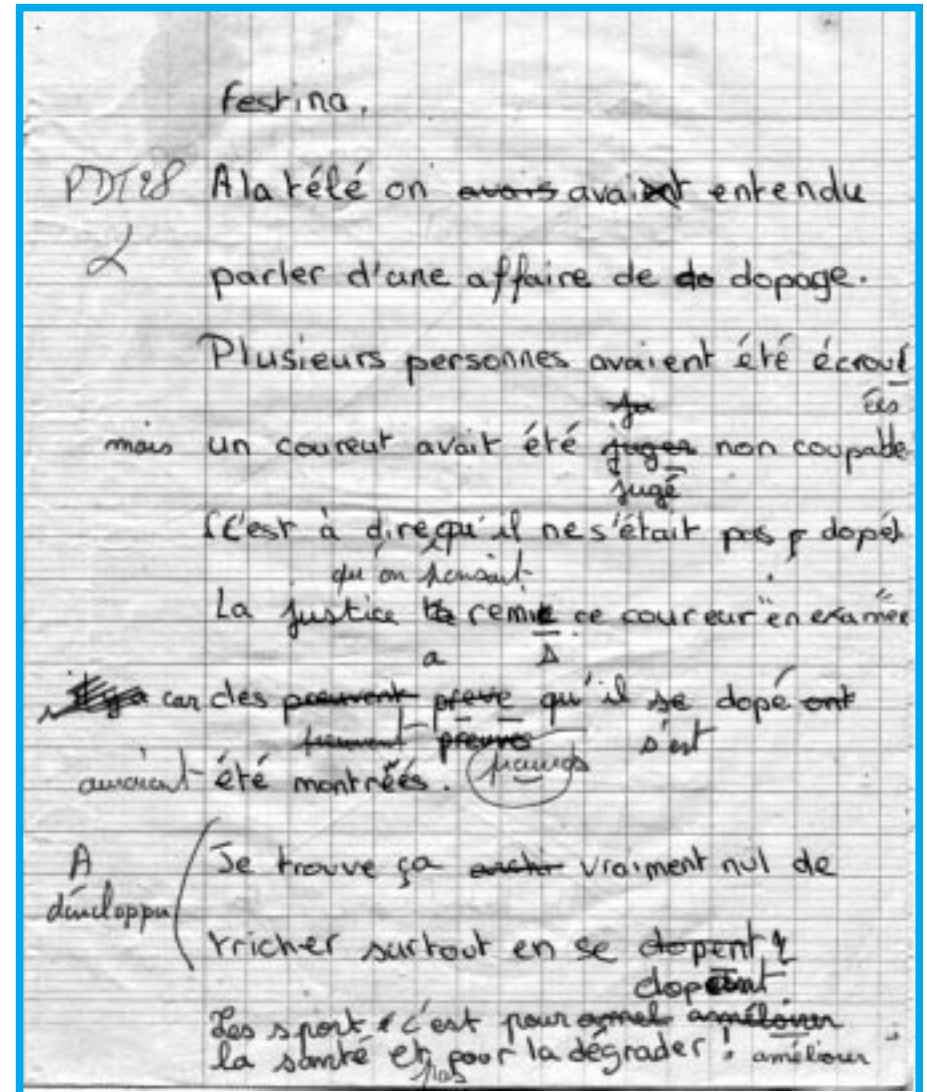 Festina.
PDT28 A la télé on avais avaient entendu
2
parler d'une affaire de do dopage.
Plusieurs personnes avaient été écroué
ju ées
mais un coureur avait été juger non coupable
jugé
(C'est à dire qu'il ne s'était pas dopé)
qu'on pensait
La justice remit ce coureur "en examen"
a s
car des preuvent preve qu'il se dopé ont
preuvent preuves s'est
auraient été montrées. preuves
A Je trouve ça archi vraiment nul de
développer
tricher surtout en se dopent
dopant
Les sport c'est pour amel améloirer
la santé et pour la dégrader ! améliorer
pas